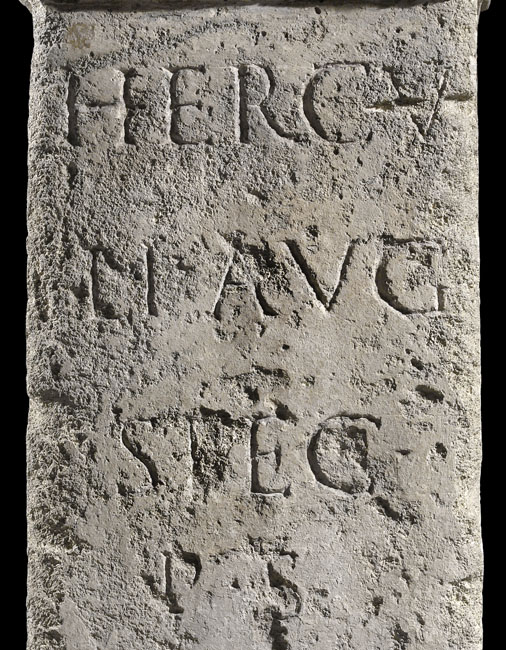 HERC V
N AVG
STEG
P S